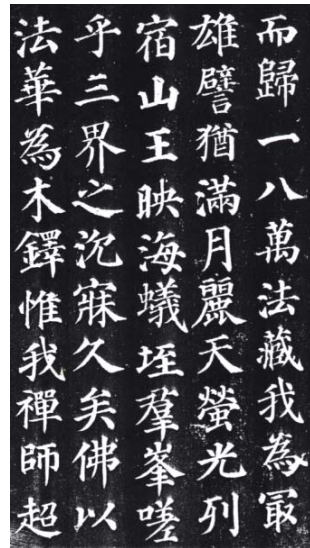 而歸一八萬法藏我為冣
雄譬猶滿月麗天螢光列
宿山王映海蟻垤羣峯嗟
乎三界之沉寐久矣佛以
法華為木鐸惟我禪師超